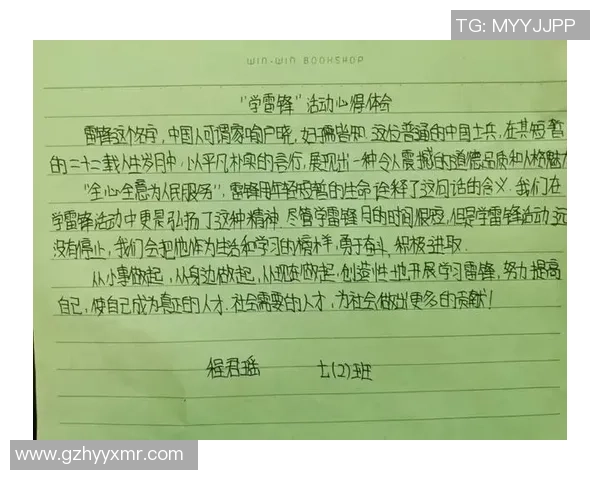 TG: MYYJJPP
WIN-WIN BOOKSHOP
“学雷锋”活动心得体会
雷锋这个名字，中国人可谓家喻户晓，妇孺皆知。这位普通的中国士兵，在其短暂
的二十二载人生岁月中，以平凡朴实的言行，展现出一种令人震撼的道德品质和人格魅力
“全心全意为人民服务”，雷锋用年轻短暂的生命诠释了这句话的含义。我们在
学雷锋活动中更是弘扬了这种精神。尽管学雷锋月的时间很短，但是学雷锋活动远
没有停止，我们会把他作为生活和学习的榜样，勇于奋斗，积极进取。
从小事做起，从身边做起，从现在做起，创造性地开展学习雷锋，努力提高
自己，使自己成为真正的人才，社会需要的人才，为社会做出更多的贡献！
程君瑶 七(2)班
www.gzhyyxmr.com